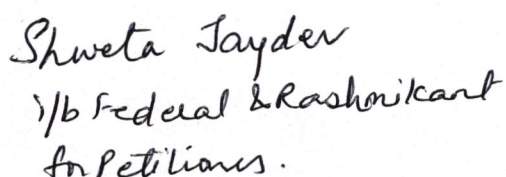 Shweta Jaydev
i/b Federal & Rashmikant
for Petitioners.